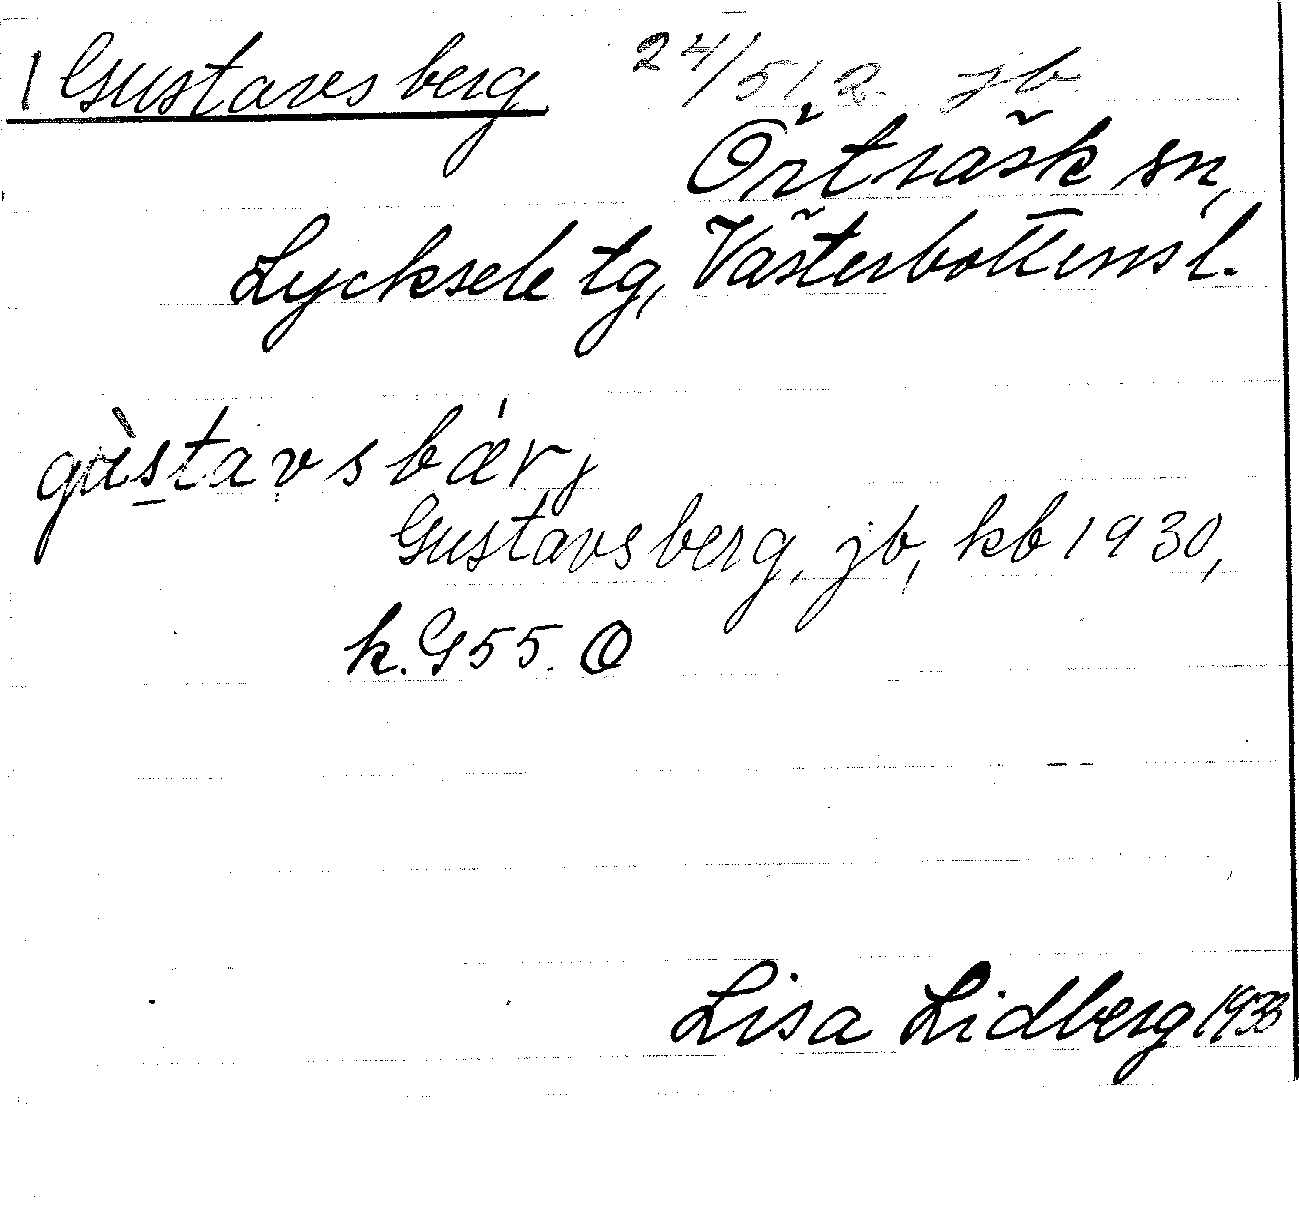 1 Gustavsberg 24/512 jb
Örträsk sn,
Lycksele tg, Västerbottens l.
gùstavsbǽrj
Gustavsberg, jb, kb 1930,
k. G 55. O
Lisa Lidberg 1933